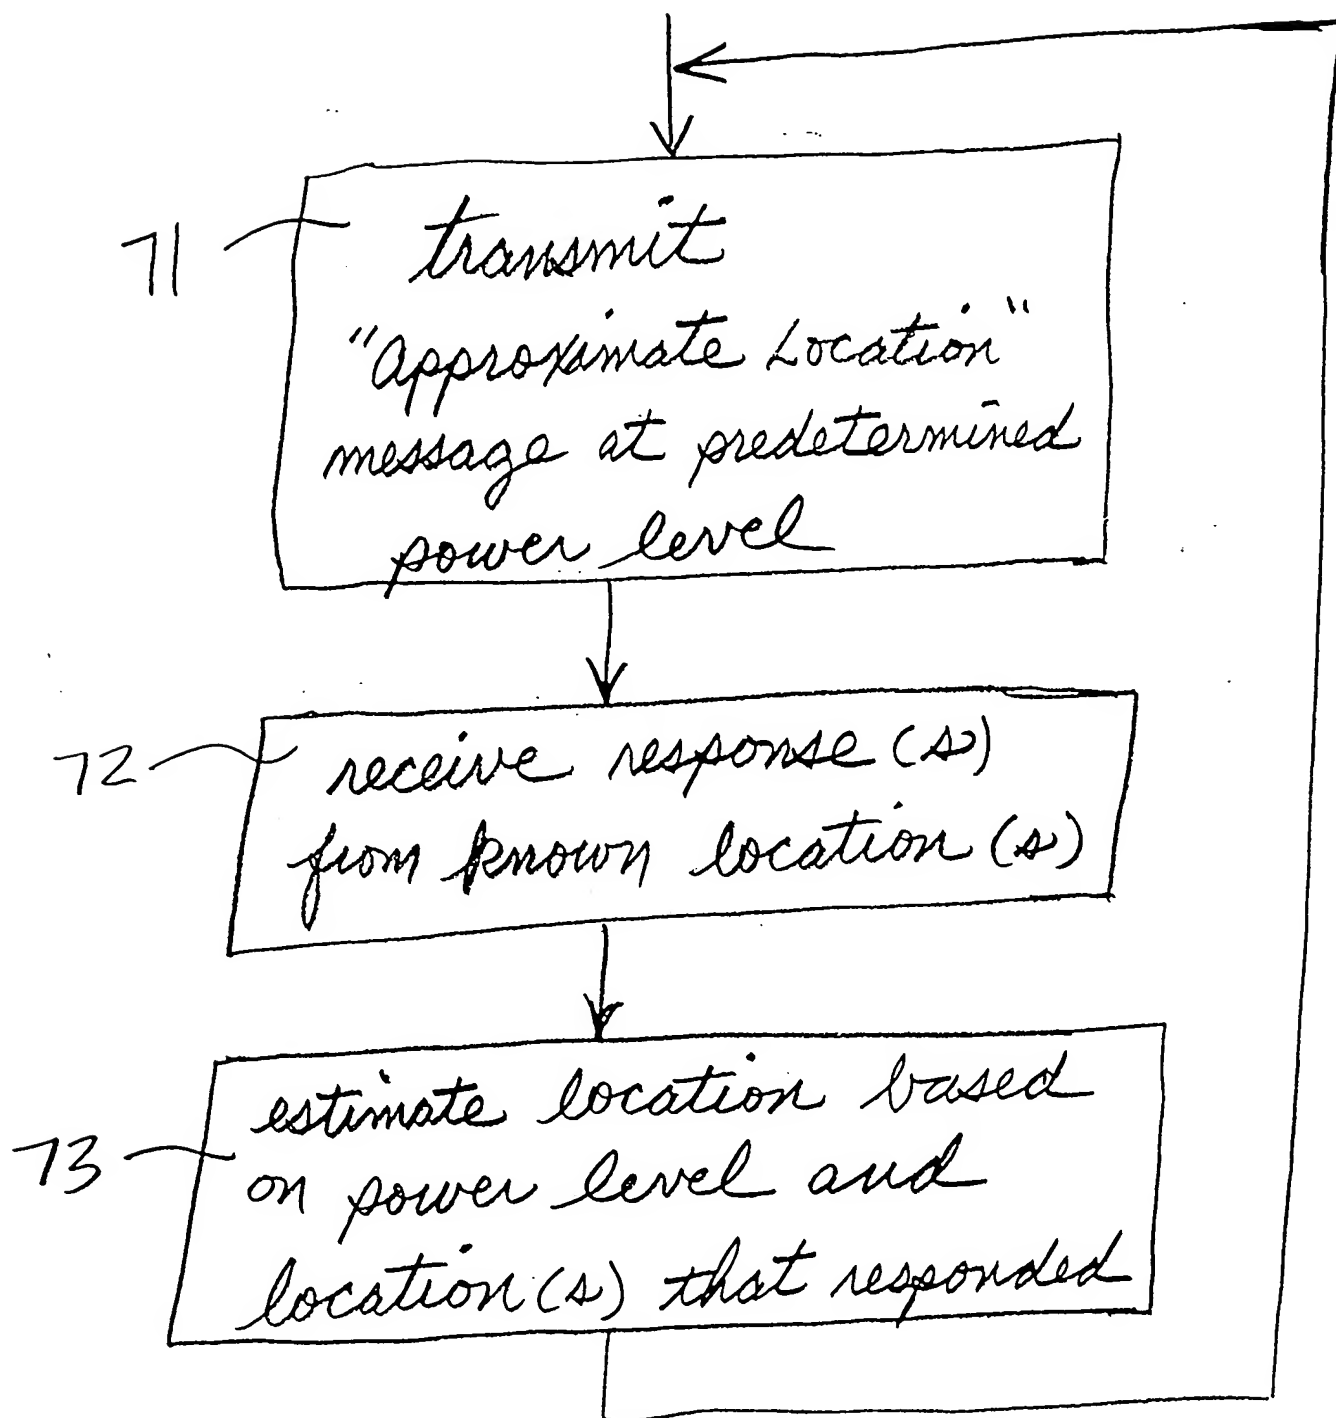 71
transmit
"Approximate Location"
message at predetermined
power level
72
receive response(s)
from known location(s)
73
estimate location based
on power level and
location(s) that responded